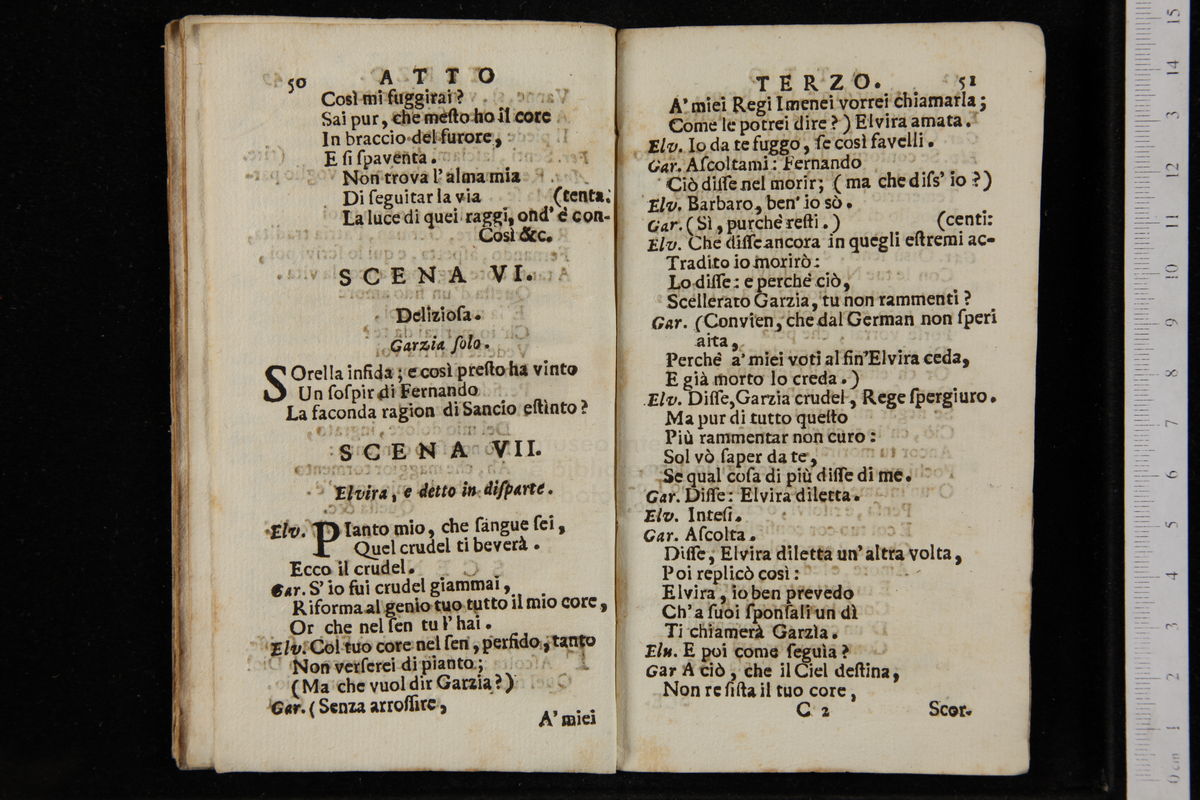 50 ATTO
Così mi fuggirai?
Sai pur, che meſto ho il core
In braccio del furore,
E ſi ſpaventa.
Non trova l'alma mia
Di ſeguitar la via (tenta.
La luce di quei raggi, ond' è con-
Così &c.
SCENA VI.
Delizioſa.
Garzia ſolo.
SOrella infida; e così preſto ha vinto
Un ſoſpir di Fernando
La faconda ragion di Sancio eſtinto?
SCENA VII.
Elvira, e detto in diſparte.
Elv. PIanto mio, che ſangue ſei,
Quel crudel ti beverà.
Ecco il crudel.
Gar. S' io fui crudel giammai,
Riforma al genio tuo tutto il mio core,
Or che nel ſen tu l' hai.
Elv. Col tuo core nel ſen, perfido, tanto
Non verſerei di pianto;
(Ma che vuol dir Garzia?)
Gar. (Senza arroſſire,
A' miei
TERZO. 51
A' miei Regi Imenei vorrei chiamarla;
Come le potrei dire?) Elvira amata.
Elv. Io da te fuggo, ſe così favelli.
Gar. Aſcoltami: Fernando
Ciò diſſe nel morir; (ma che diſs' io?)
Elv. Barbaro, ben' io sò.
Gar. (Sì, purchè reſti.) (centi:
Elv. Che diſſe ancora in quegli eſtremi ac-
Tradito io morirò:
Lo diſſe: e perchè ciò,
Scellerato Garzia, tu non rammenti?
Gar. (Convien, che dal German non ſperi
aita,
Perchè a' miei voti al fin' Elvira ceda,
E già morto lo creda.)
Elv. Diſſe, Garzia crudel, Rege ſpergiuro.
Ma pur di tutto queſto
Più rammentar non curo:
Sol vò ſaper da te,
Se qual coſa di più diſſe di me.
Gar. Diſſe: Elvira diletta.
Elv. Inteſi.
Gar. Aſcolta.
Diſſe, Elvira diletta un' altra volta,
Poi replicò così:
Elvira, io ben prevedo
Ch' a ſuoi ſponſali un dì
Ti chiamerà Garzìa.
Elu. E poi come ſeguìa?
Gar A ciò, che il Ciel deſtina,
Non re ſiſta il tuo core,
C 2 Scor-